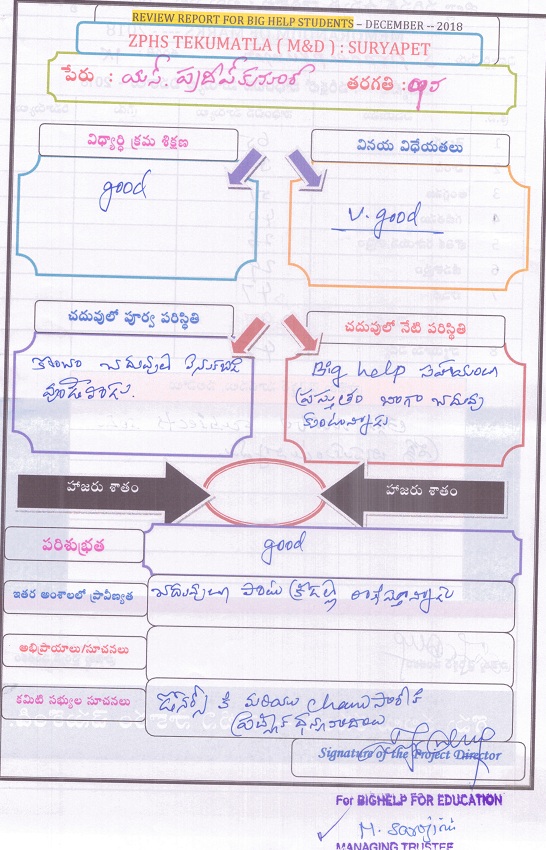 REVIEW REPORT FOR BIG HELP STUDENTS – DECEMBER -- 2018
ZPHS TEKUMATLA ( M&D ) : SURYAPET
పేరు : యస్. ప్రదీప్ కుమార్ తరగతి :
విధ్యార్థి క్రమ శిక్షణ
వినయ విధేయతలు
good
V. good
చదువులో పూర్వ పరిస్థితి
చదువులో నేటి పరిస్థితి
కొంచం చదువులో వెనుకబడి
వుండేవాడు.
Big help సహాయంతో
ప్రస్తుతం బాగా చదువు
కుంటున్నాడు
హాజరు శాతం
హాజరు శాతం
పరిశుభ్రత
good
ఇతర అంశాలలో ప్రావీణ్యత
చదువుతో పాటు క్రీడల్లో
అభిప్రాయాలు/సూచనలు
కమిటి సభ్యుల సూచనలు
డోనర్స్ కి మరియు Chand సార్ కి
ధన్యవాదాలు
Signature of the Project Director
For BIGHELP FOR EDUCATION
M. Sarojini
MANAGING TRUSTEE